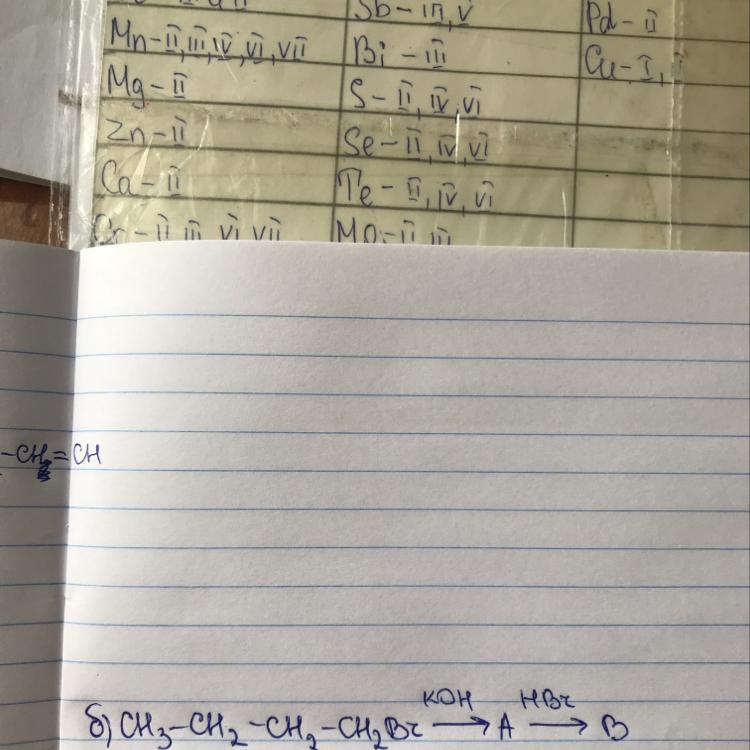 Sb-III,V
Pd-II
Mn-II,III,IV,VI,VII
Bi-III
Cu-I,
Mg-II
S-II,IV,VI
Zn-II
Se-II,IV,VI
Ca-II
Te-II,IV,VI
-II, III, VI, VII
-CH=CH
б) CH₃-CH₂-CH₂-CH₂Br KOH→ A HBr→ B